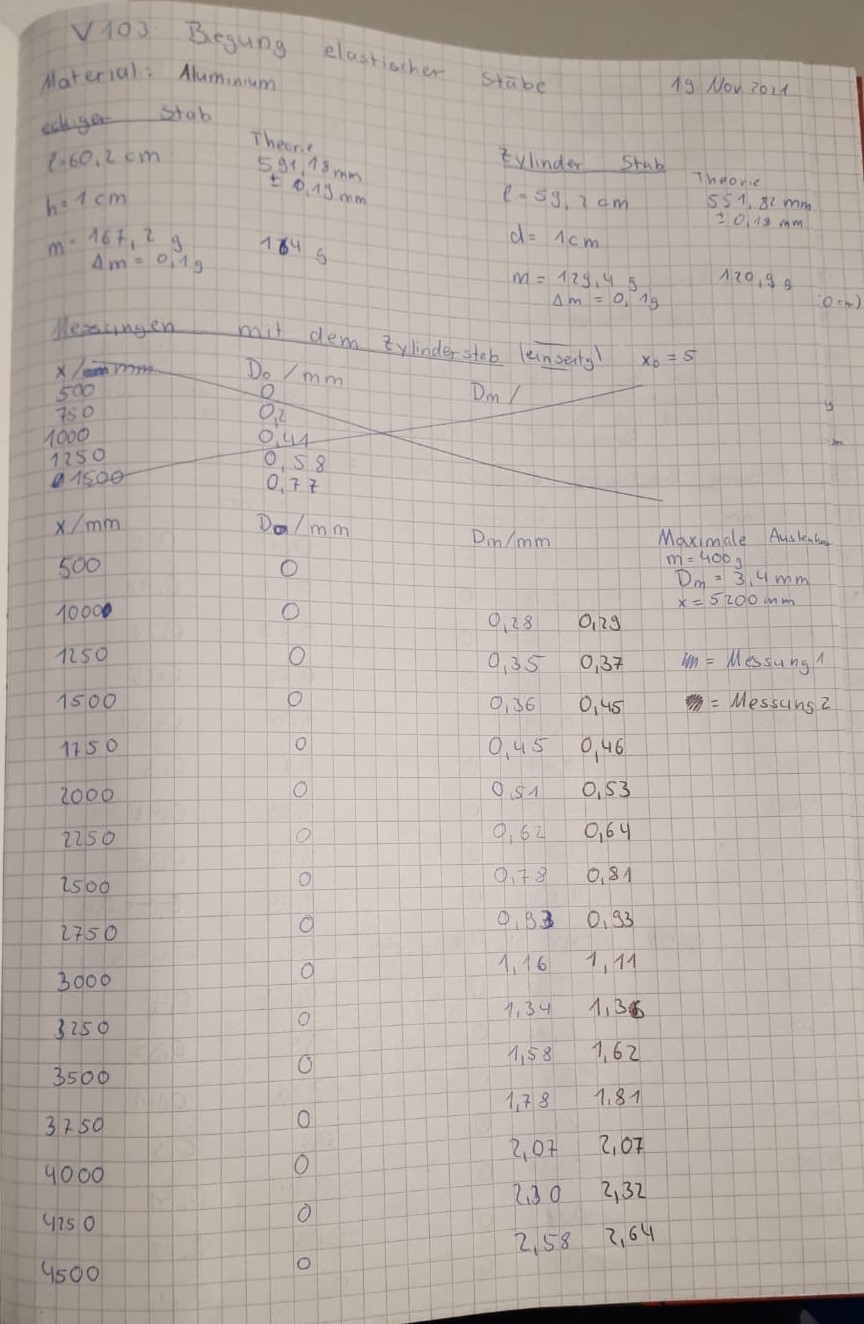 V103 Biegung elastischer Stäbe 19 Nov 2021
Material: Aluminium
eckiger Stab
l=60,2 cm
h=1cm
m=167,2 g
Δm=0,1g
Theorie
591,19mm
±0,19mm
164 g
Zylinder Stab
l=59,2cm
d=1cm
m=129,4 g
Δm=0,1g
Theorie
551,82 mm
±0,19 mm
120,9g
Messungen mit dem Zylinderstab (einseitg) x₀=5
x/mm D₀/mm Dm/
500 0
750 0,2
1000 0,41
1250 0,58
1500 0,77
x/mm D₀/mm Dm/mm
500 0
1000 0 0,28 0,29
1250 0 0,35 0,37
1500 0 0,36 0,45
1750 0 0,45 0,46
2000 0 0,51 0,53
2250 0 0,62 0,64
2500 0 0,78 0,81
2750 0 0,93 0,93
3000 0 1,16 1,11
3250 0 1,34 1,36
3500 0 1,58 1,62
3750 0 1,78 1,81
4000 0 2,07 2,07
4250 0 2,30 2,32
4500 0 2,58 2,64
Maximale
m=400g
Dm=3,4mm
x=5200mm
= Messung 1
= Messung 2